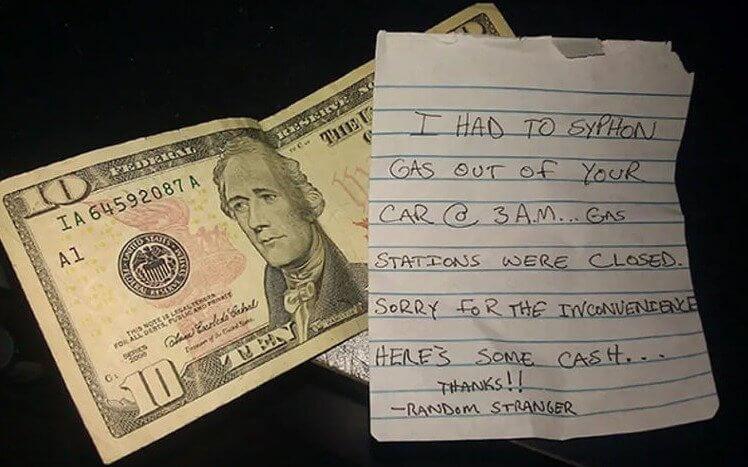 FEDERAL RESERVE NO
THE U
10
IA 64592087 A
A1
THIS NOTE IS LEGAL TENDER
FOR ALL DEBTS, PUBLIC AND PRIVATE
SERIES
Treasurer of the United States.
TEN
10
I HAD TO SYPHON
GAS OUT OF YOUR
CAR @ 3 A.M... GAS
STATIONS WERE CLOSED.
SORRY FOR THE INCONVENIENCE
HERE'S SOME CASH...
THANKS!!
-RANDOM STRANGER